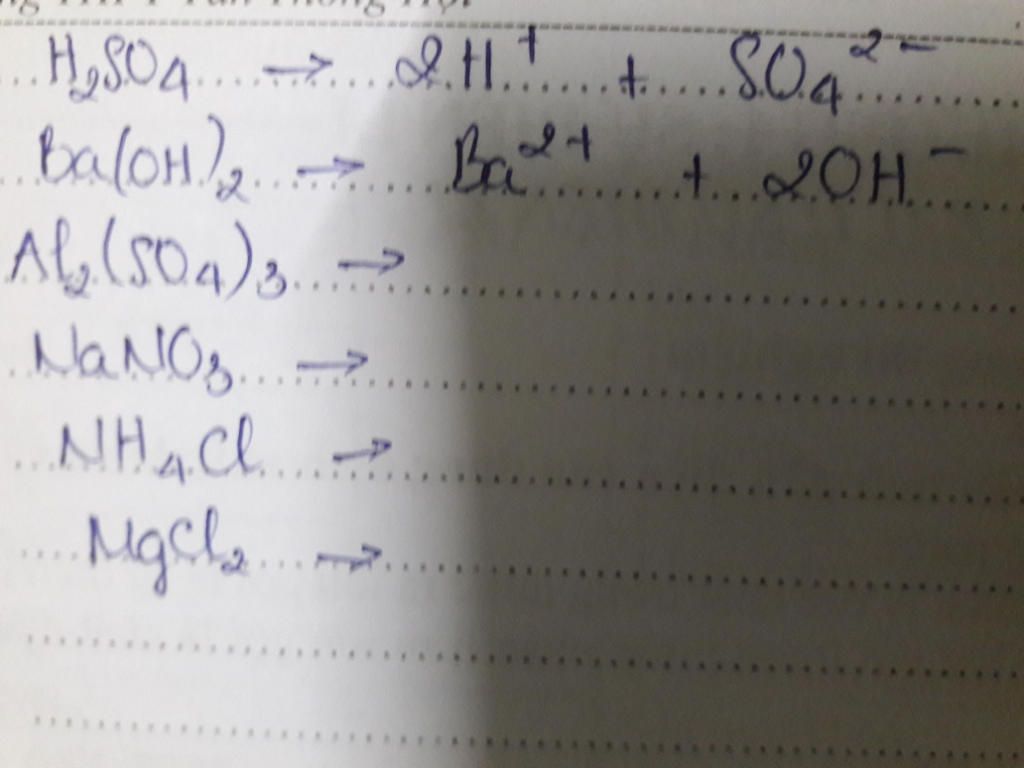 H₂SO₄ → 2H⁺ + SO₄²⁻
Ba(OH)₂ → Ba²⁺ + 2OH⁻
Al₂(SO₄)₃ →
NaNO₃ →
NH₄Cl →
MgCl₂ →